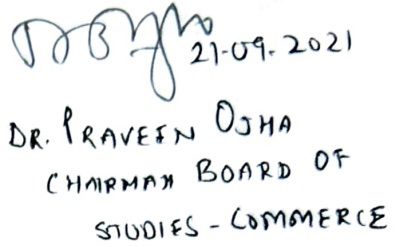 21-09-2021
DR. PRAVEEN OJHA
CHAIRMAN BOARD OF
STUDIES - COMMERCE